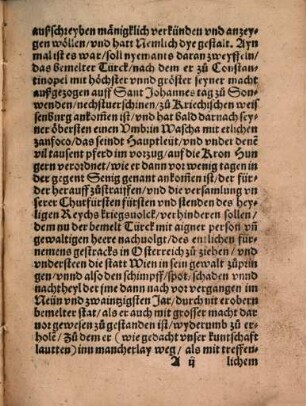 auffschreyben mãnigklich verkünden vnd anzey-
gen wöllen/vnd hatt Nemlich dye gestalt. Ayn
mal ist es war/soll nyemants daran zweyffeln/
das bemelter Türck/nach dem er zů Constan-
tinopel mit höchster vnnd gröster seyner macht
auffgezogen auff Sant Johannes tag zů Son-
wenden/nechstuerschinen/zů Kriechischen weis-
senburg ankom̃en ist/vnd hat bald darnach sey-
ner öbersten einen Vmbrin Wascha mit etlichen
zanfoco/das seindt Hauptleut/vnd vnder denen
vil tausent pferd im vorzug/auff die Kron Hun-
gern verordnet/wie er dann vor wenig tagen in
der gegent Sonig genant ankom̃en ist/der für-
der herauff zůstraiffen/vnd die versamlung vn
serer Churfürsten fürsten vnd stenden des hey-
ligen Reychs kriegsuolck/verhinderen sollen/
dem nu der bemelt Türck mit aigner person vñ
gewaltigen heere nachuolgt/des entlichen für-
nemens gestracks in Osterreich zů ziehen/vnd
vndersteen die statt Wien in sein gewalt zůprin
gen/vnnd also den schimpff/spot/schaden vnnd
nachtheyl der jme dann nach vor vergangen im
Neün vnd zwaintzigsten Jar/durch nit erobern
bemelter stat/als er auch mit grosser macht dar
vor gewesen zů gestanden ist/wyderumb zů er-
holẽ/Zů dem er (wie gedacht vnser kuntschafft
lautten) inn mancherlay weg/als mit treffen-
A ij lichem